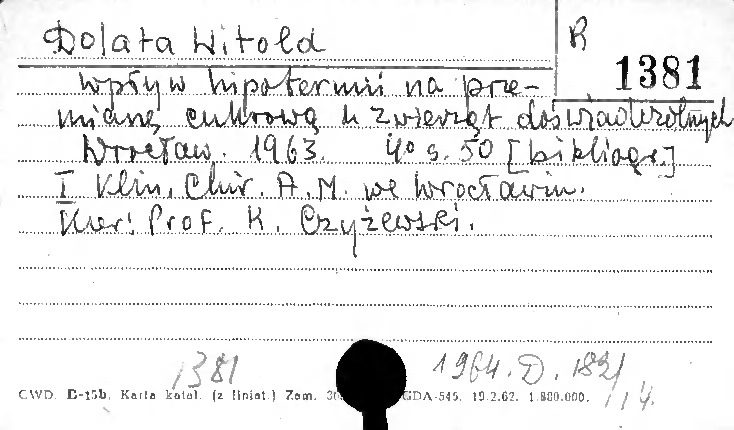 Dolata Witold
R 1381
Wpływ hipotermii na prze-
mianę cukrową u zwierząt doświadczalnych
Wrocław. 1963. 4° s. 50 [bibliogr.]
I Klin. Chir. A.M. we Wrocławiu.
Kier: Prof. K. Czyżewski.
1381
1964. D. 182/14.
CWD. E-15b, Karta katal. (z liniat.) Zam. GDA-545. 19.2.62. 1.880.000.